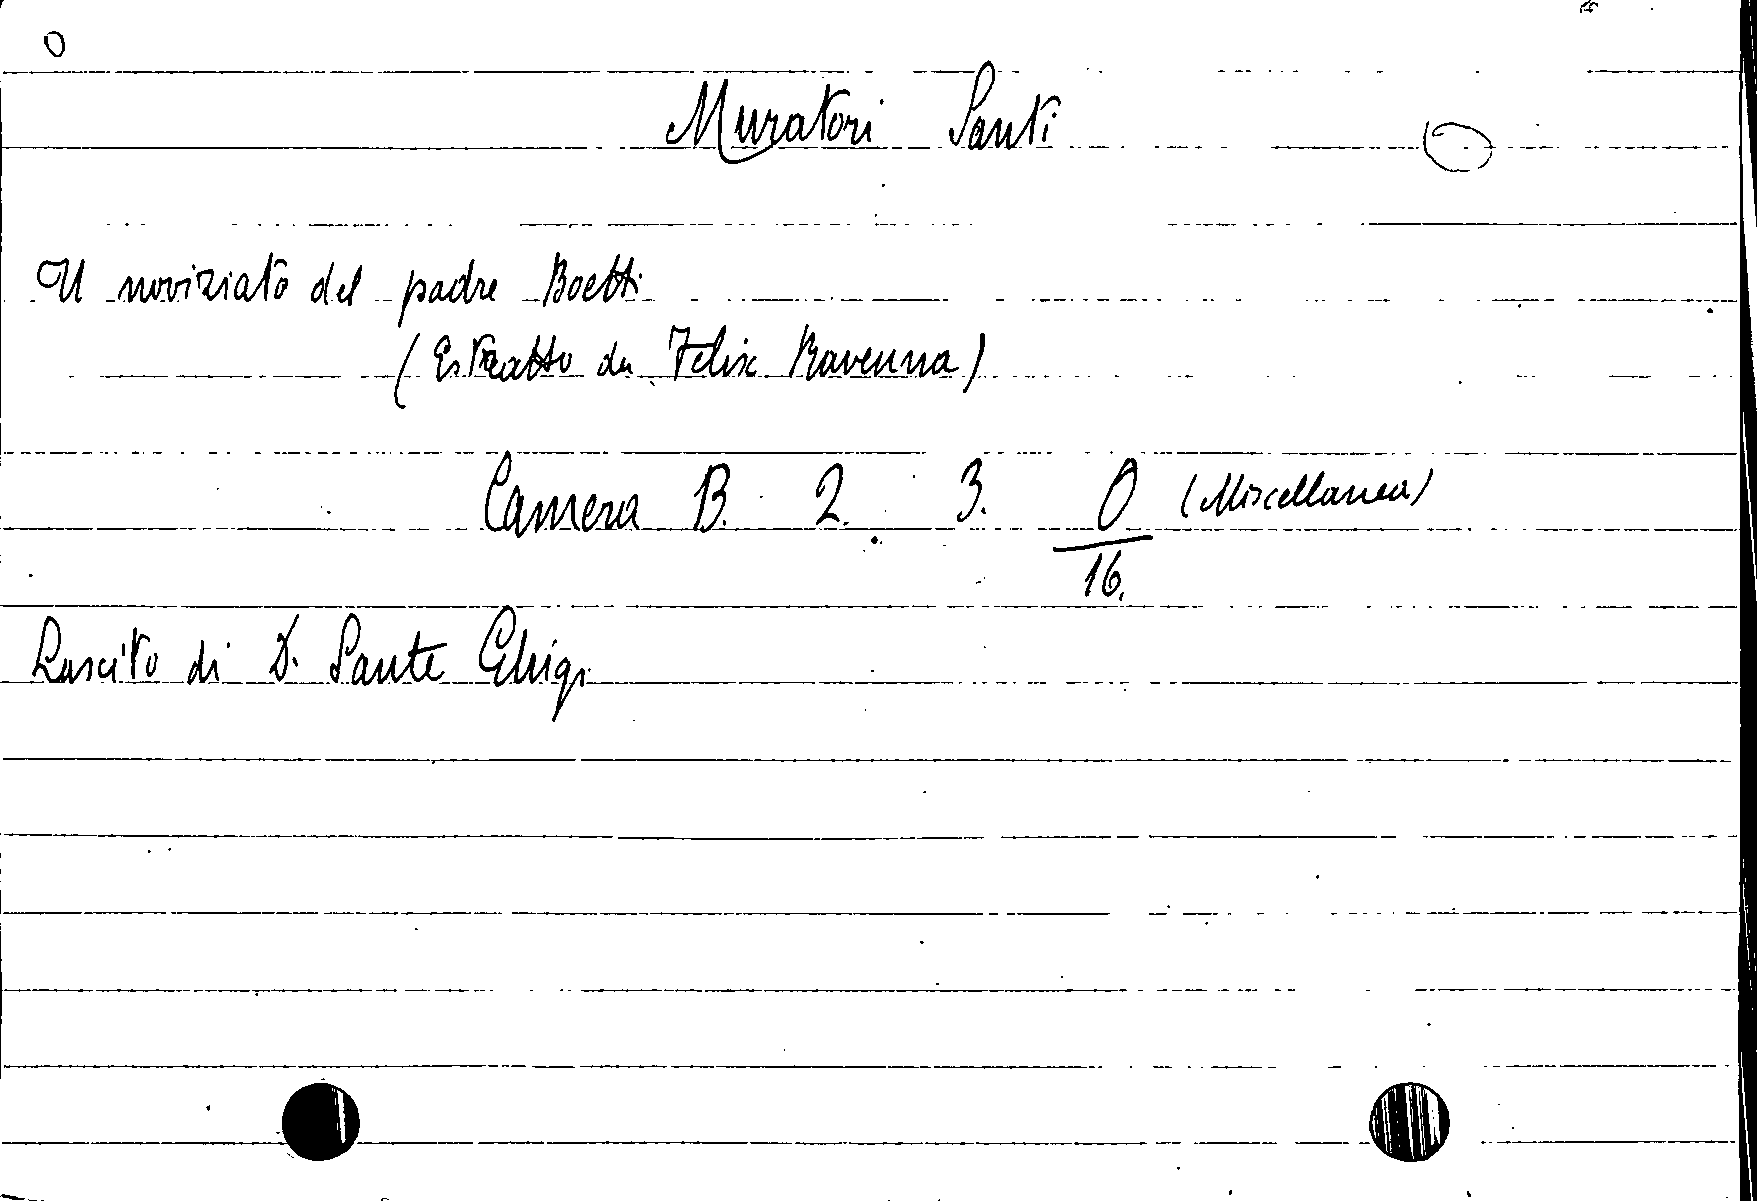 O
Muratori Santi
Il noviziato del padre Boetti
(Estratto da Felix Ravenna)
Camera B. 2. 3. O (Miscellanea)
16.
Lascito di D. Sante Ghigi